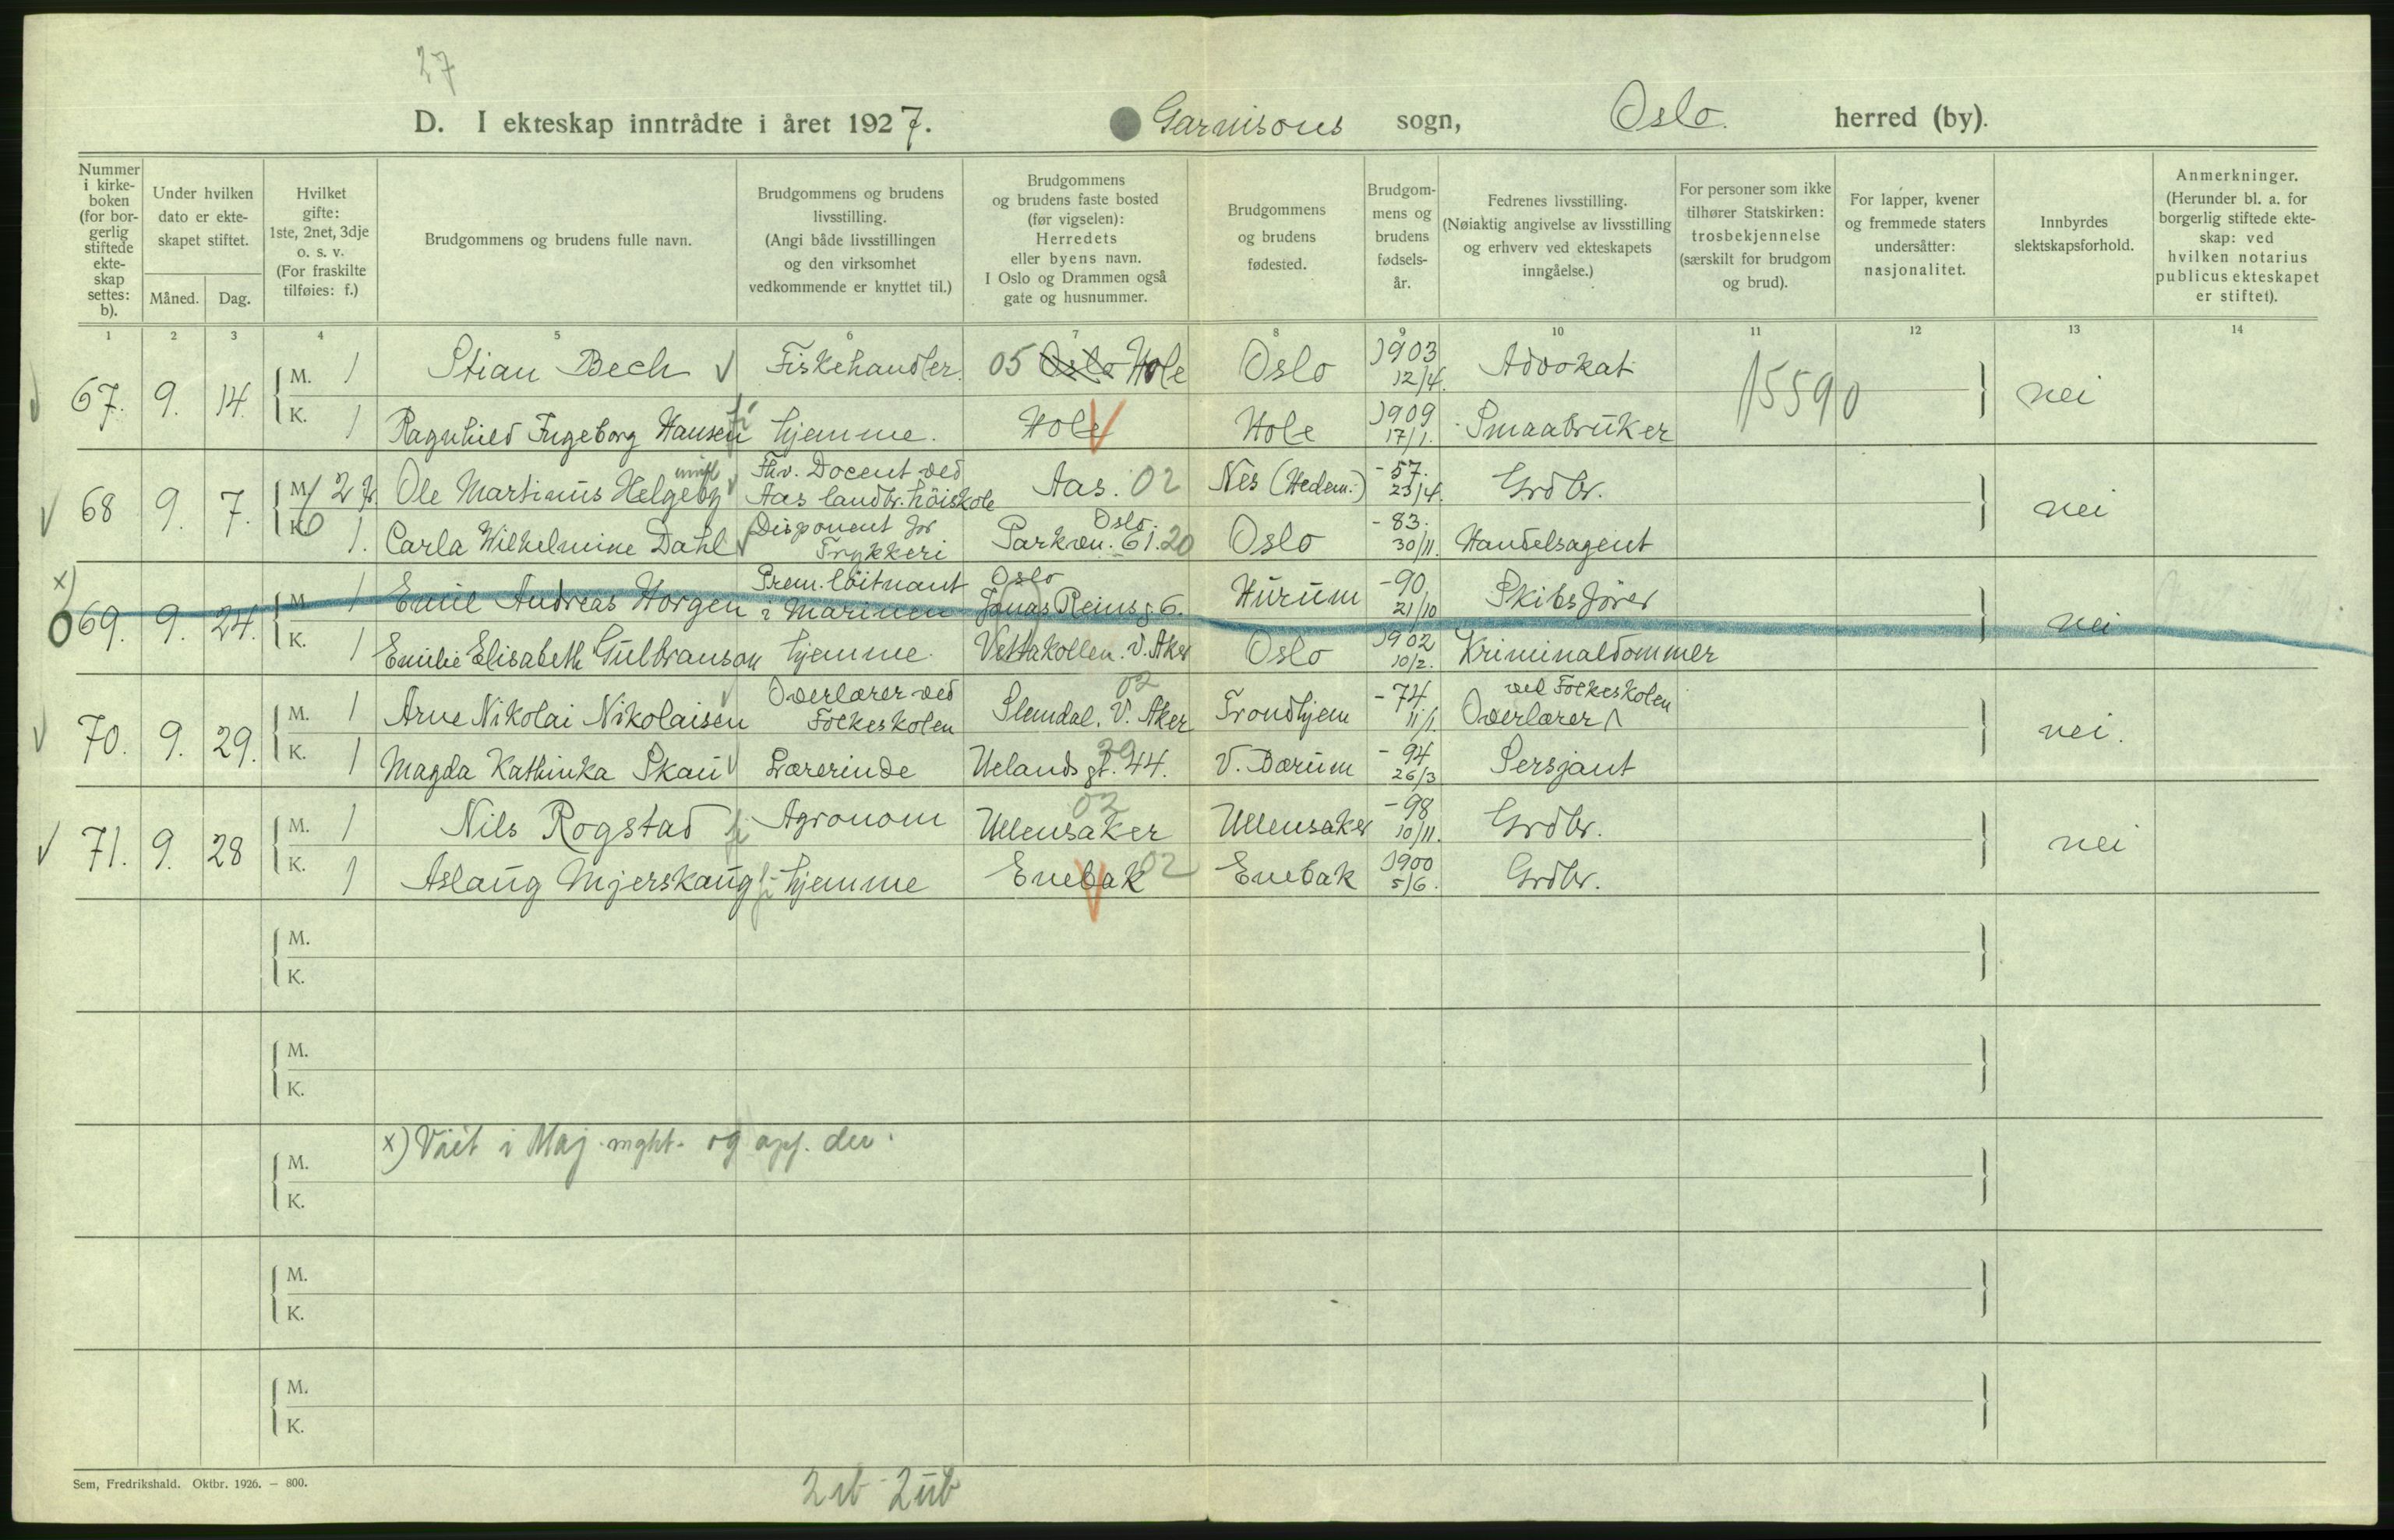 27
D. I ekteskap inntrådte i året 1927. Garnisons sogn, Oslo. herred (by).
Nummer i kirke-boken (for bor-gerlig stiftede ekte-skap settes: b).
Under hvilken dato er ekte-skapet stiftet.
Måned. Dag.
Hvilket gifte: 1ste, 2net, 3dje o. s. v. (For fraskilte tilføies: f.)
Brudgommens og brudens fulle navn.
Brudgommens og brudens livsstilling. (Angi både livsstillingen og den virksomhet vedkommende er knyttet til.)
Brudgommens og brudens faste bosted (før vigselen): Herredets eller byens navn. I Oslo og Drammen også gate og husnummer.
Brudgommens og brudens fødested.
Brudgom-mens og brudens fødsels-år.
Fedrenes livsstilling. (Nøiaktig angivelse av livsstilling og erhverv ved ekteskapets inngåelse.)
For personer som ikke tilhører Statskirken: trosbekjennelse (særskilt for brudgom og brud).
For lapper, kvener og fremmede staters undersåtter: nasjonalitet.
Innbyrdes slektskapsforhold.
Anmerkninger. (Herunder bl. a. for borgerlig stiftede ekte-skap: ved hvilken notarius publicus ekteskapet er stiftet).
1 2 3 4 5 6 7 8 9 10 11 12 13 14
67. 9. 14. M. 1 Stian Bech Fiskehandler. 05 Oslo Hole Oslo 1903 12/4. Advokat 15590 nei
K. 1 Ragnhild Ingeborg Hansen hjemme. Hole Hole 1909 17/1. Smaabruker
68 9. 7. M. 2 f. Ole Martinus Helgeby Fhv. Docent ved Aas landbr. höiskole Aas. 02 Nes (Hedem.) -57. 23/4. Grdbr. nei
K. 1. Carla Wilhelmine Dahl Disponent for Trykkeri Oslo Parkvn. 61. 20 Oslo -83. 30/11. Handelsagent
x) 69. 9. 24. M. 1 Emil Andreas Horgen Prem. löitnant i Marinen Oslo Jonas Reinsg 6. Hurum -90 21/10 Skibsfører nei
K. 1 Emilie Elisabeth Gulbranson hjemme. Vettakollen. V. Aker Oslo 1902 10/2. Kriminaldommer
70. 9. 29. M. 1 Arne Nikolai Nikolaisen Overlærer ved Folkeskolen 02 Slemdal. V. Aker Trondhjem -74. 11/1. Overlærer ved Folkeskolen nei.
K. 1 Magda Kathinka Skau Lærerinde Uelandsgt. 44. V. Bærum -94 26/3 Sersjant
71. 9. 28 M. 1 Nils Rogstad Agronom 02 Ullensaker Ullensaker -98 10/11. Grdbr. nei
K. 1 Aslaug Mjerskaug hjemme Enebak 02 Enebak 1900 5/6. Grdbr.
M.
K.
M.
K.
x) Viet i Maj. og opf. der.
M.
K.
M.
K.
M.
K.
Sem, Fredrikshald. Oktbr. 1926. — 800.